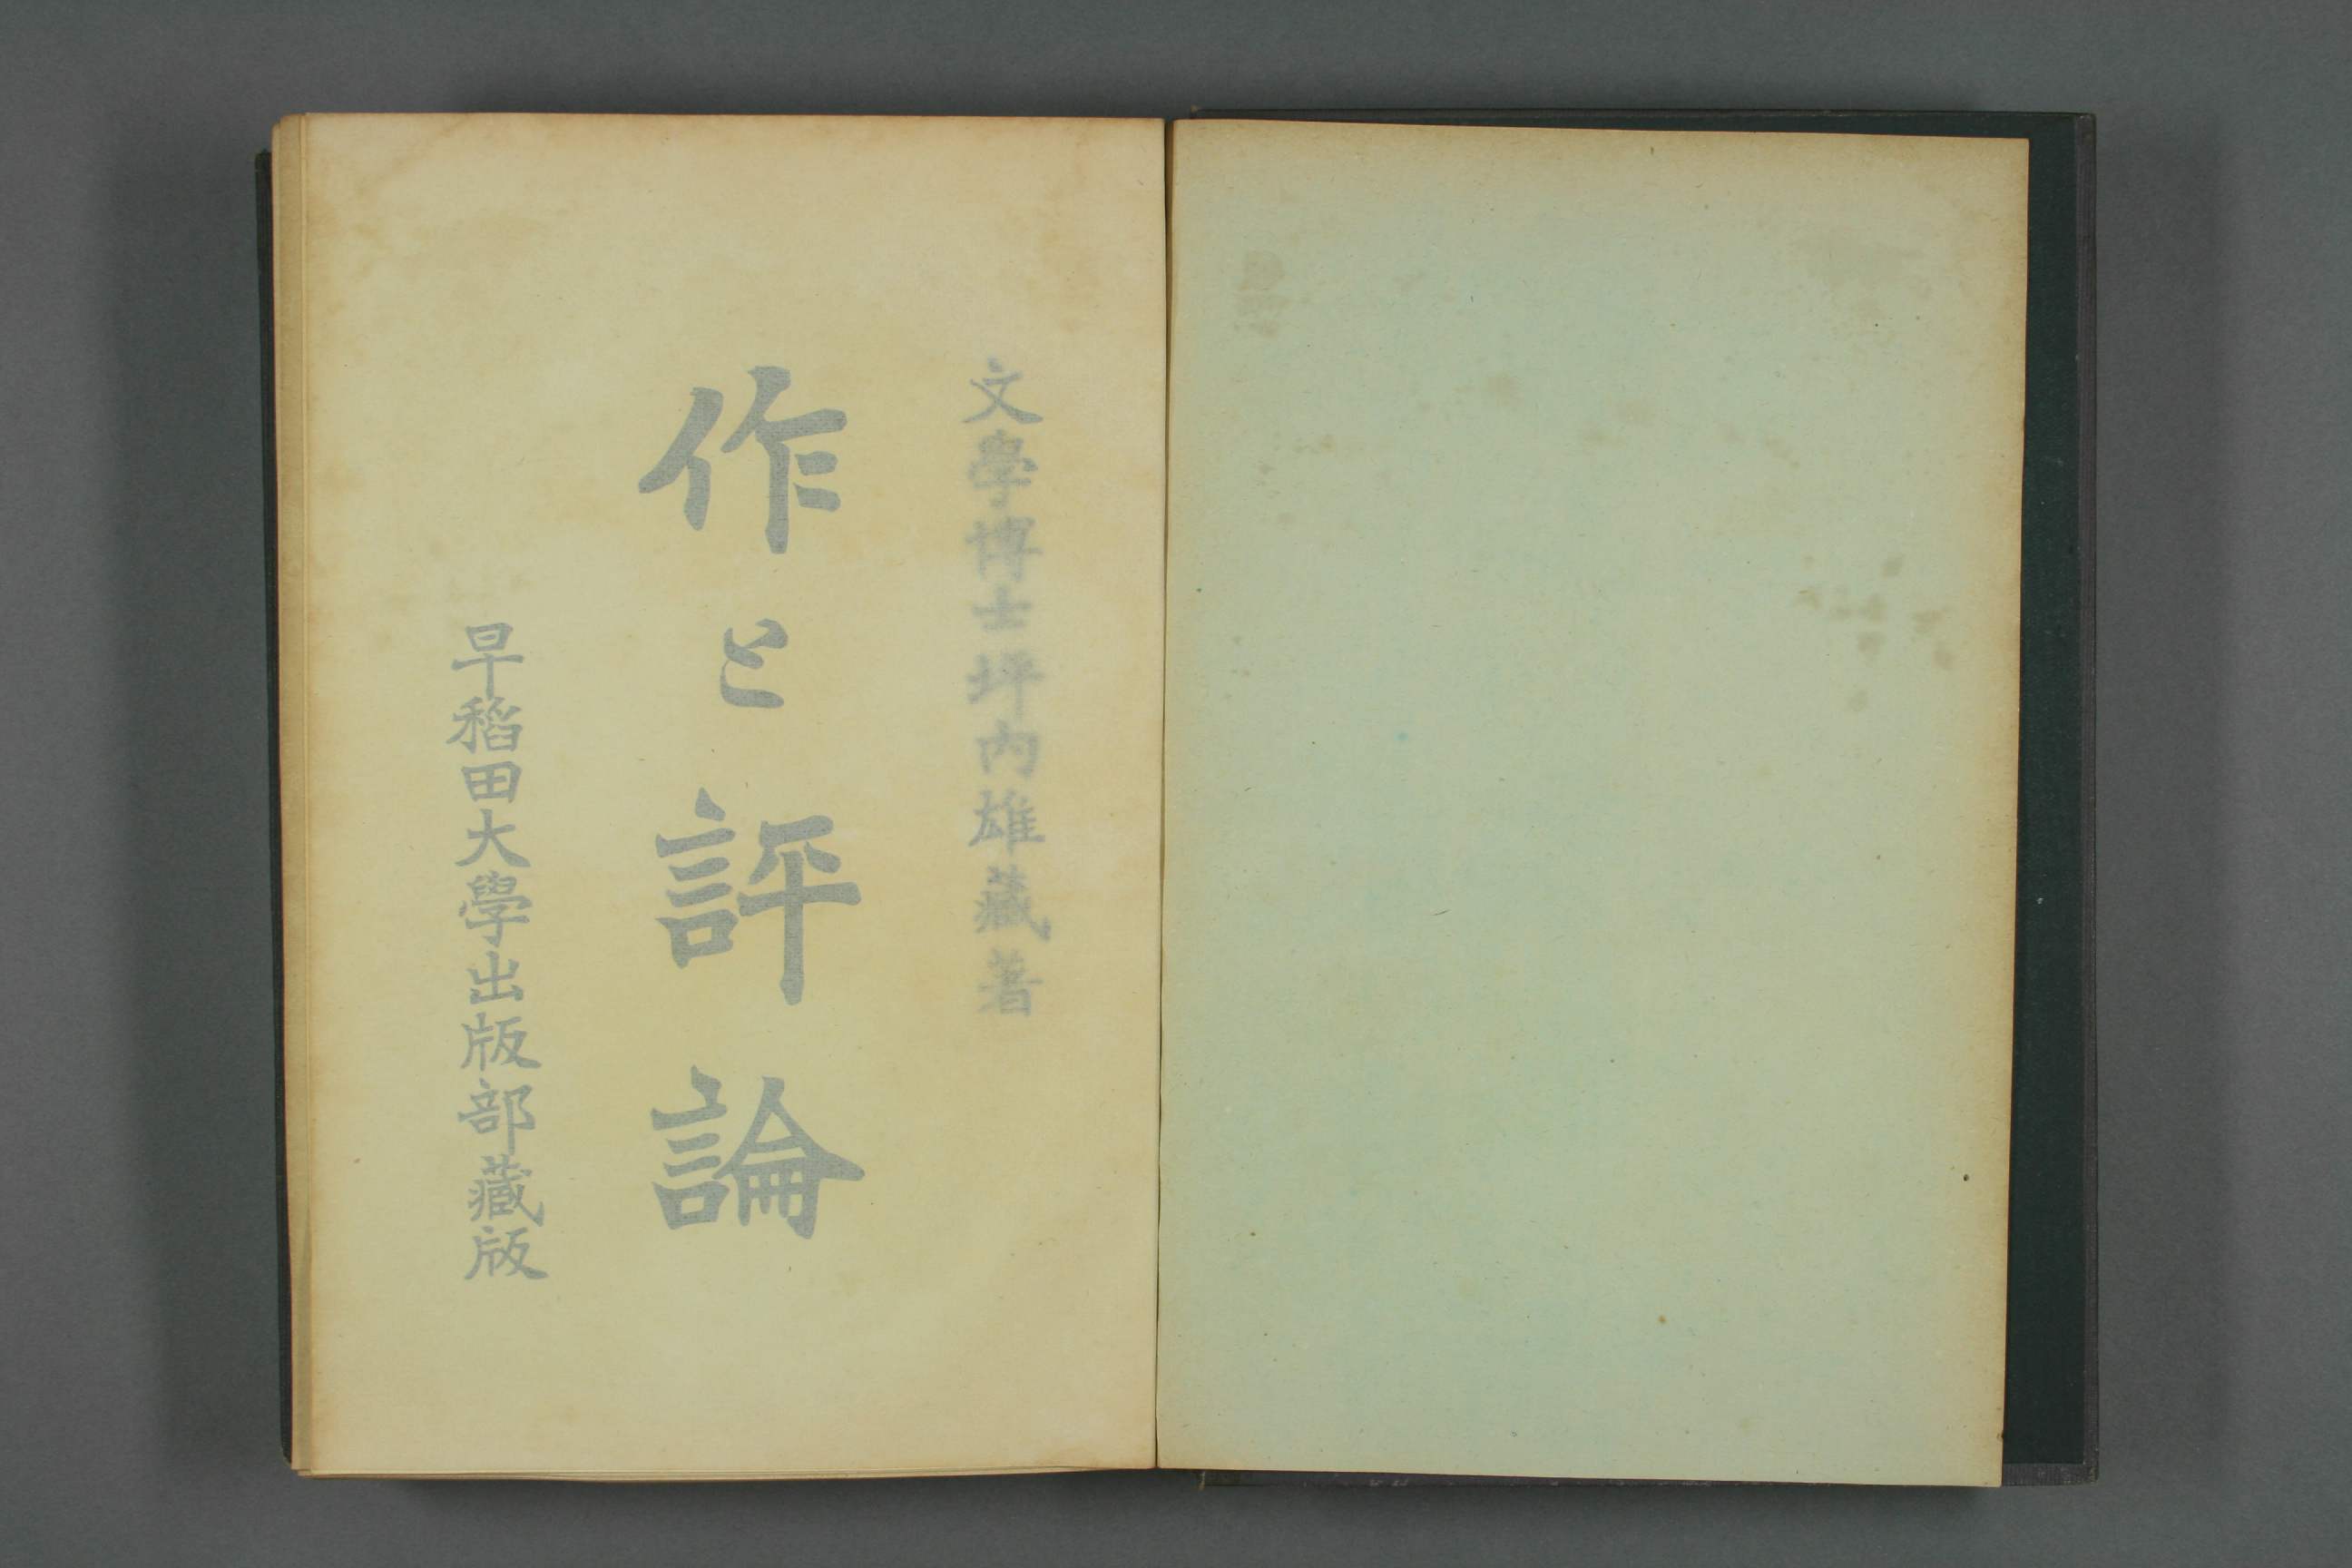 文學博士坪內雄藏著
作と評論
早稻田大學出版部藏版